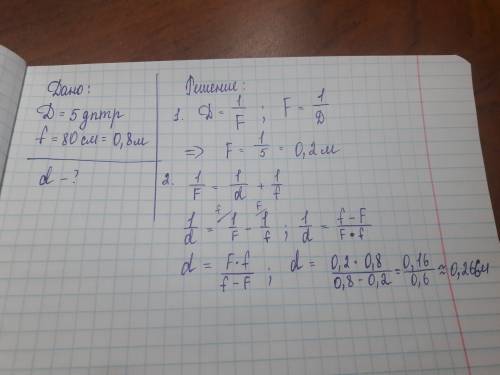 Дано:
D = 5 дптр
f = 80 см = 0,8 м
d - ?
Решение:
1. D = 1/F ; F = 1/D
=> F = 1/5 = 0,2 м
2. 1/F = 1/d + 1/f
1/d = 1/F - 1/f ; 1/d = f-F/F•f
d = F•f/f-F ; d = 0,2•0,8/0,8-0,2 = 0,16/0,6 ≈ 0,266м